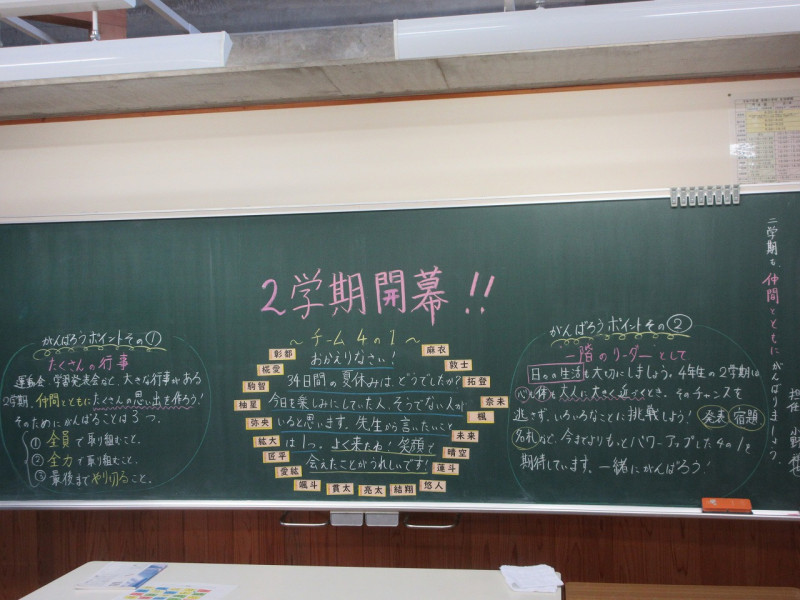 2学期開幕!!
がんばろうポイントその①
たくさんの行事
運動会、学習発表会など、大きな行事がある
2学期。仲間とともにたくさんの思い出を作ろう!
そのためにがんばることは3つ。
①全員で取り組むこと。
②全力で取り組むこと。
③最後までやり切ること。
~チーム4の1~
おかえりなさい!
34日間の夏休みは、どうでしたか?
今日を楽しみにしていた人、そうでない人が
いると思います。先生から言いたいこと
は1つ。よく来たね!笑顔で
会えたことがうれしいです!
彰都
椛愛
駒智
柚星
弥央
紘大
匠平
愛紘
颯斗
貫太
亮太
結翔
悠人
蓮斗
晴空
未来
楓
奈未
拓登
敦士
麻衣
がんばろうポイントその②
一階のリーダーとして
日々の生活も大切にしましょう。4年生の2学期は
心も体も大人に大きく近づくとき。そのチャンスを
逃さず、いろいろなことに挑戦しよう!発表 宿題
名札など、今までよりもっとパワーアップした4の1を
期待しています。一緒にがんばろう!
二学期も、仲間とともにがんばりましょう。
担任